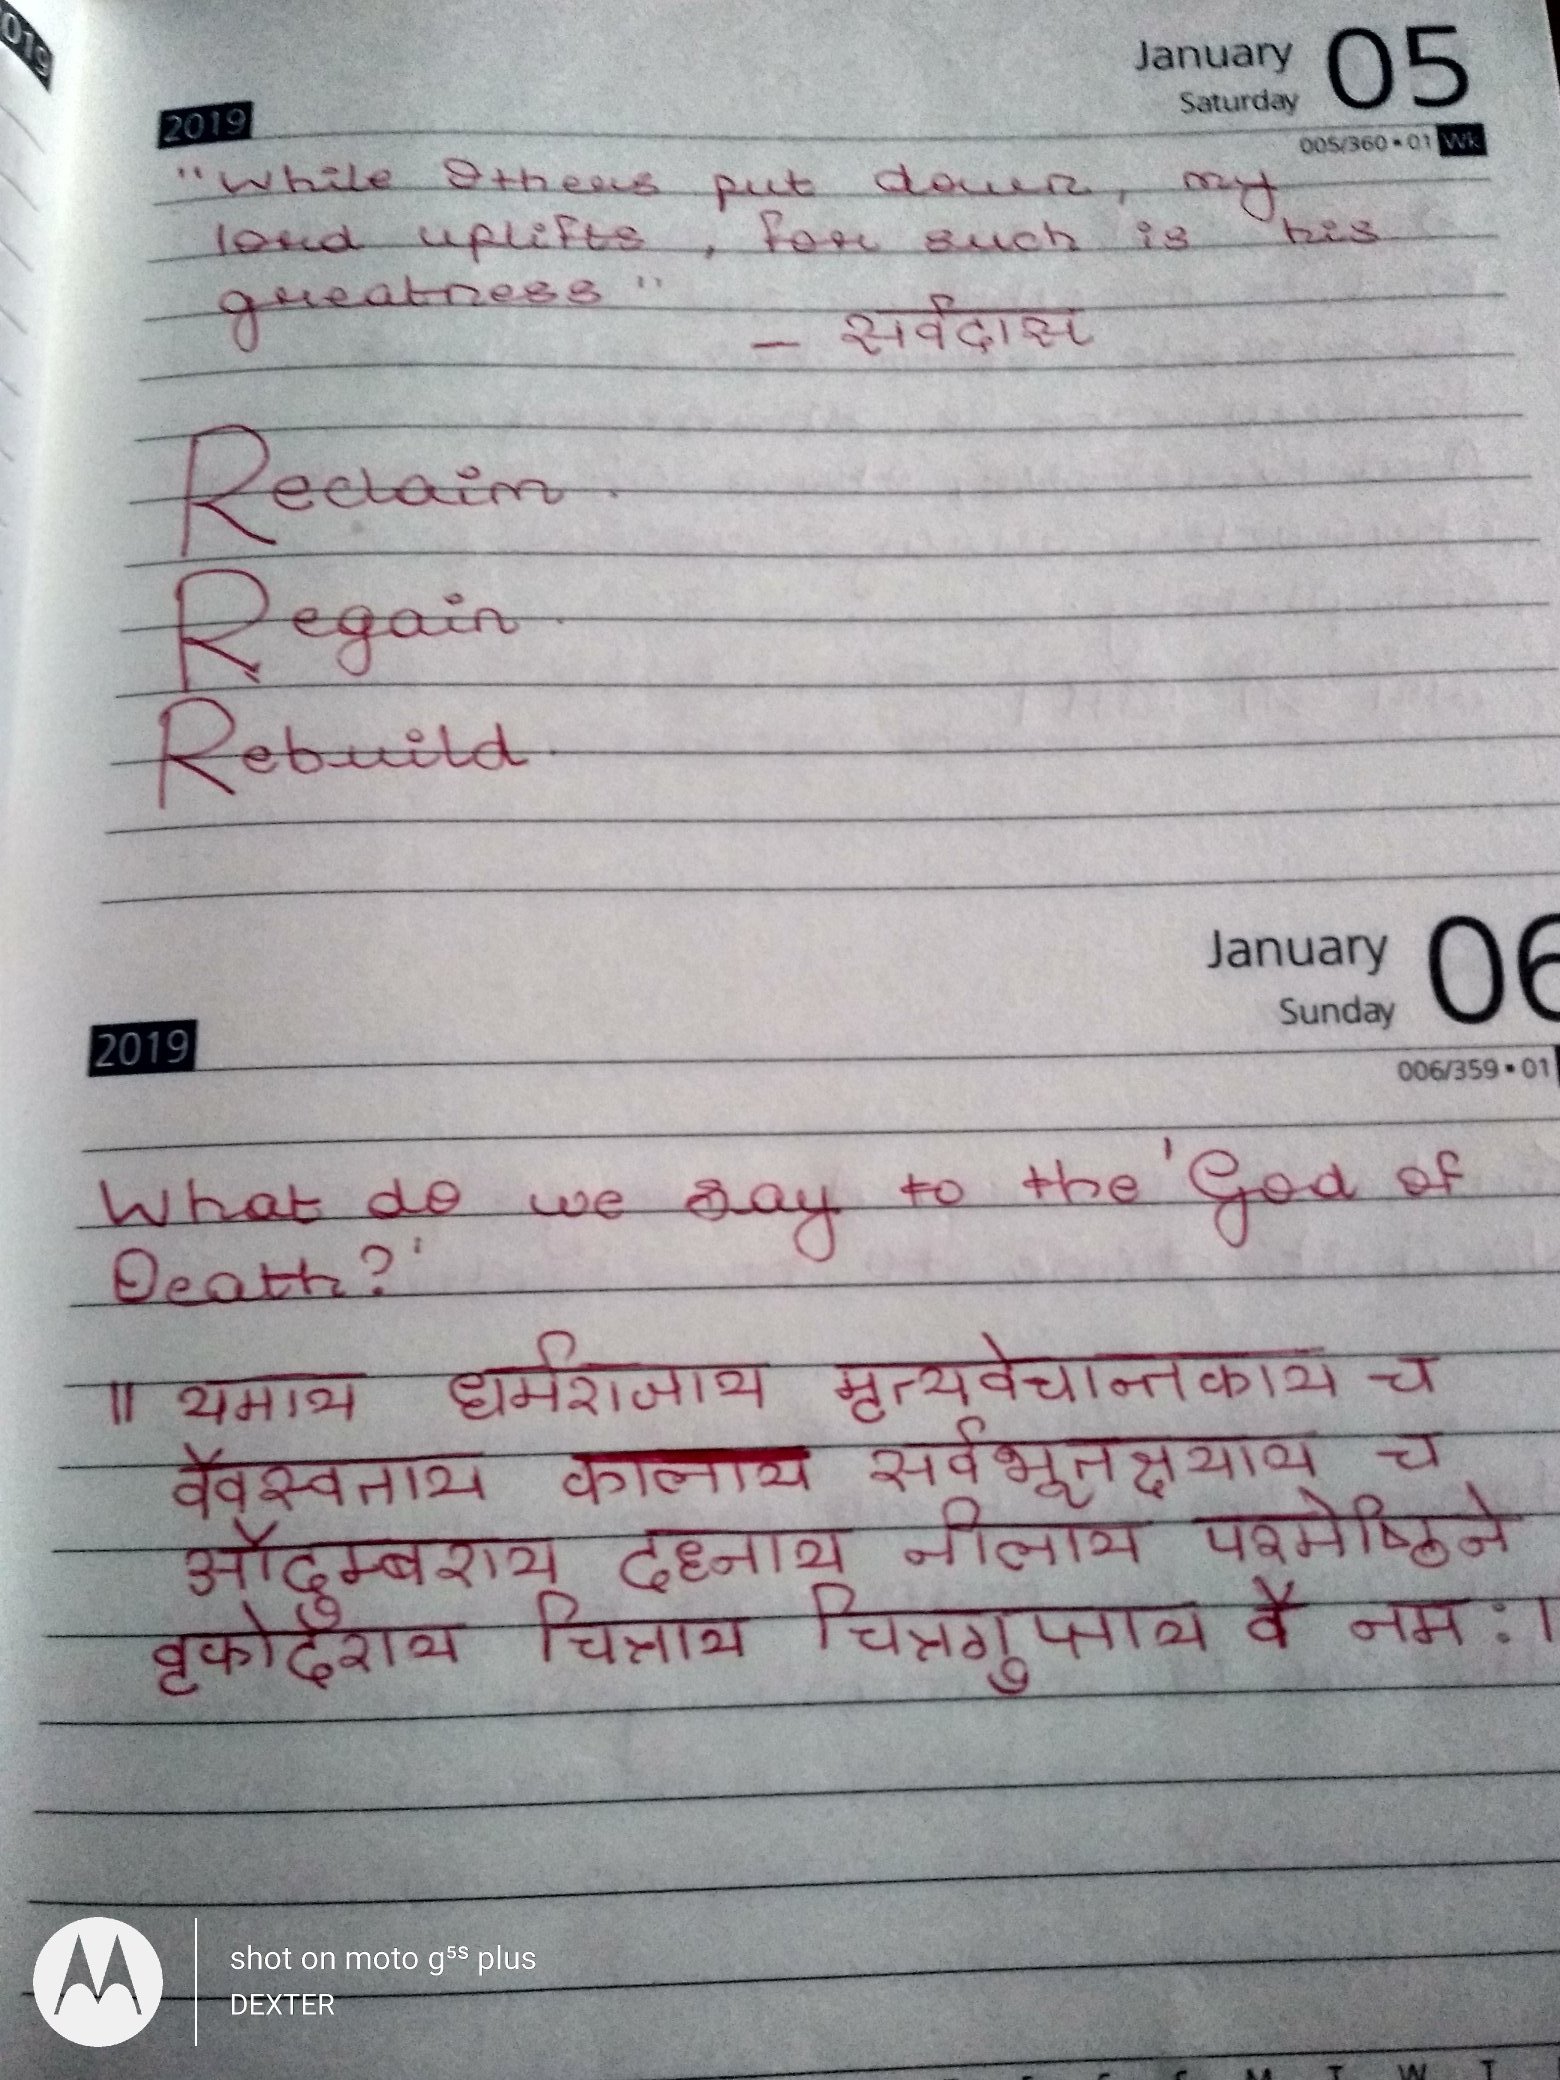 2019
January 05
Saturday
005/360 • 01 Wk
"While Others put down, my
lord uplifts, for such is his
greatness"
– सर्वदास
Reclaim.
Regain.
Rebuild.
January 06
Sunday
2019
006/359 • 01
What do we say to the 'God of
Death?'
॥ यमाय धर्मराजाय मृत्यवेचान्तकाय च
वैवस्वताय कालाय सर्वभूतक्षयाय च
औदुम्बराय दध्नाय नीलाय परमेष्ठिने
वृकोदराय चित्राय चित्रगुप्ताय वै नमः।
shot on moto g⁵ˢ plus
DEXTER